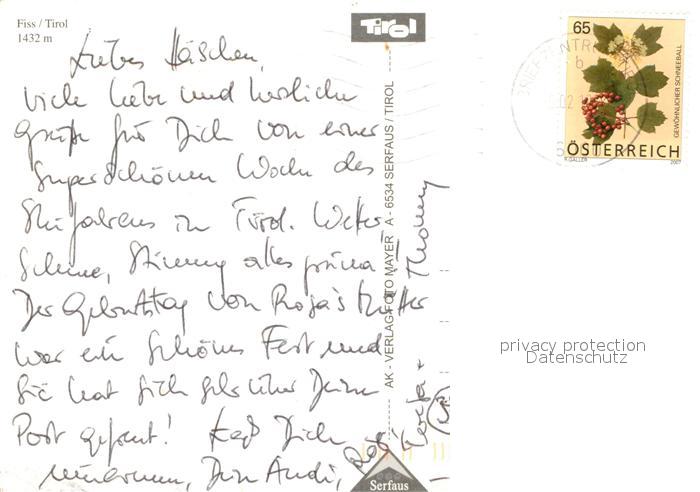 Fiss / Tirol
1432 m
Liebes Häschen,
viele liebe und herzliche
Grüße für Dich von einer
superschönen Woche des
Skifahrens in Tirol. Wetter
Schnee, Stimmung alles prima!
Der Geburtstag von Roja's Mutter
war ein schönes Fest und
Sie hat sich sehr über Deine
Post gefreut! Laß Dich
umarmen, Dein Andi,
Thommy
Tirol
AK - VERLAG FOTO MAYER A - 6534 SERFAUS / TIROL
Serfaus
65
GEWÖHNLICHER SCHNEEBALL
ÖSTERREICH
2007
privacy protection
Datenschutz